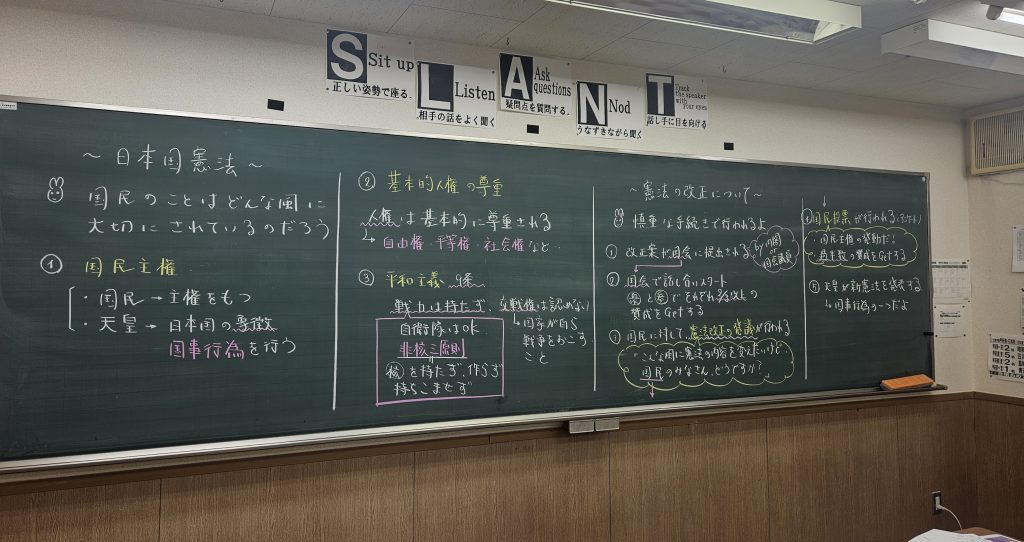 S Sit up
正しい姿勢で座る。
L Listen
相手の話をよく聞く
A Ask questions
疑問点を質問する。
N Nod
うなずきながら聞く
T Track the speaker with your eyes
話し手に目を向ける
～日本国憲法～
国民のことはどんな風に
大切にされているのだろう
① 国民主権
・国民→主権をもつ
・天皇→日本国の象徴
国事行為を行う
② 基本的人権の尊重
人権は基本的に尊重される
↳自由権・平等権・社会権など…
③ 平和主義 9条
戦力は持たず、交戦権は認めない
↳国家が自ら
戦争をおこす
こと
自衛隊はOK
非核三原則
核を持たず、作らず
持ちこませず
～憲法の改正について～
慎重な手続きで行われるよ
① 改正案が国会に提出される
by 内閣
or
国会議員
② 国会で話し合いスタート
衆と参でそれぞれ2/3以上の
賛成をGetする
国民に対して憲法改正の発議が行われる
"こんな風に憲法の内容を変えたいけど
国民のみなさん、どうですか?"
④ 国民投票が行われる
・国民主権の発動だ!
・過半数の賛成をGetする
⑤ 天皇が新憲法を発布する
↳国事行為の一つだよ